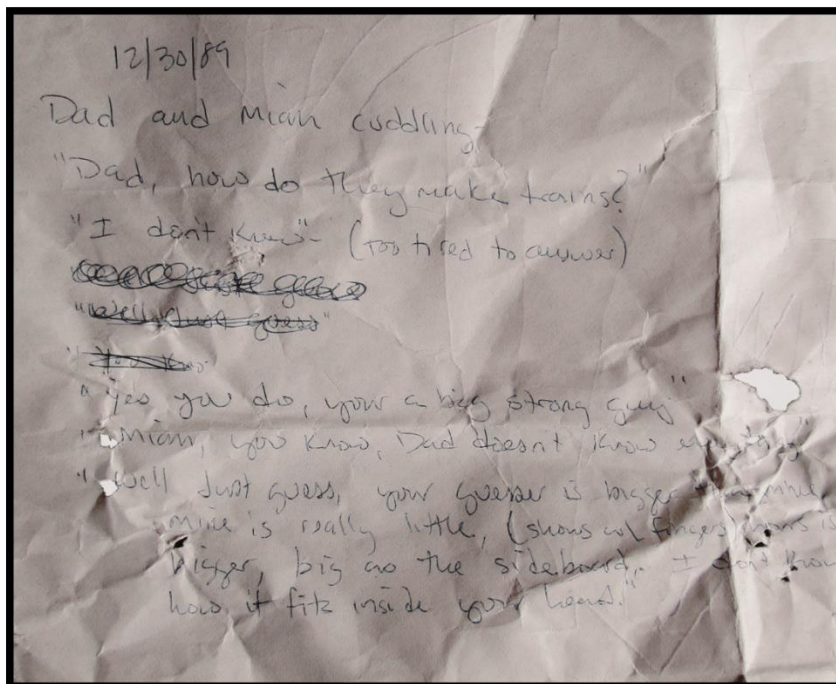 12/30/89
Dad and Miah cuddling-
"Dad, how do they make trains?"
"I don't know"- (too tired to answer)
"Well, just guess"
"Yes you do, your a big strong guy"
"Miah, you know, Dad doesn't know everything"
"Well Just guess, your guesser is bigger than mine
mine is really little, (shows w/ fingers) yours is
bigger, big as the sideboard. I don't know
how it fits inside your head."